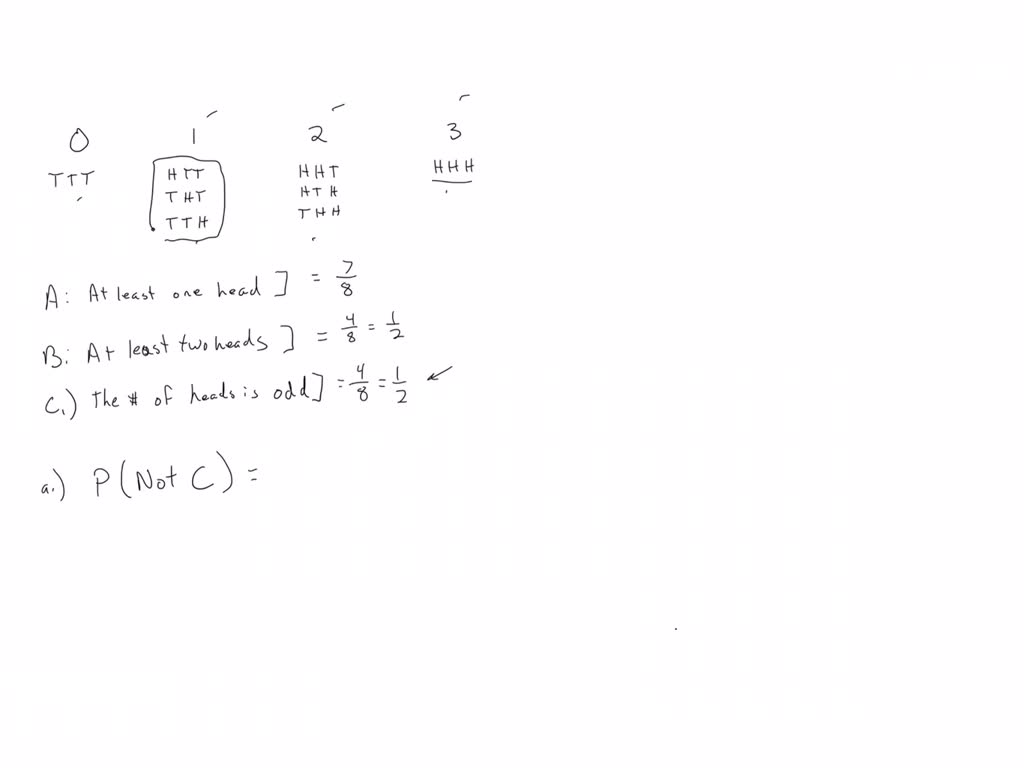 0 1 2 3
TTT HTT HHT HHH
THT HTH
TTH THH
A: At least one head ] = 7/8
B: At least two heads ] = 4/8 = 1/2
C.) The # of heads is odd ] = 4/8 = 1/2
a.) P(Not C) =